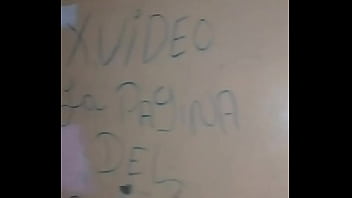 XVIDEO
La PAGINA
DEL